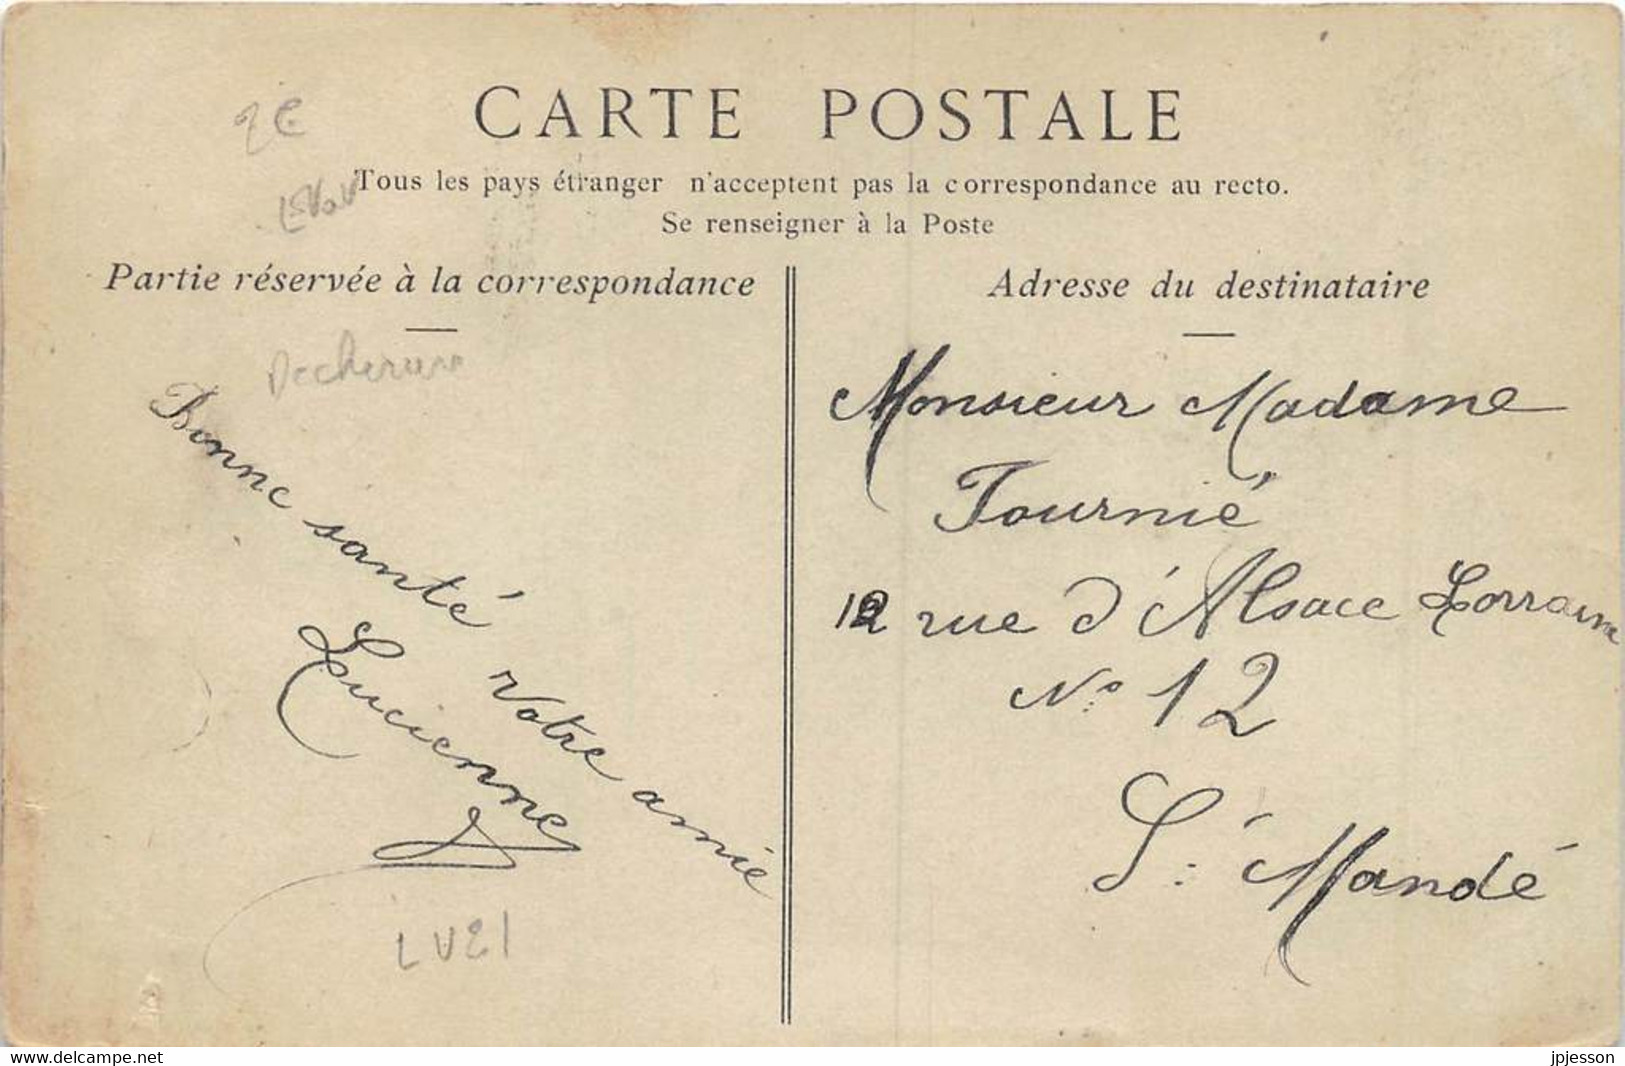 CARTE POSTALE
Tous les pays étranger n'acceptent pas la correspondance au recto.
Se renseigner à la Poste
Partie réservée à la correspondance
Bonne santé
Votre amie
Lucienne
LV21
Adresse du destinataire
Monsieur Madame
Tournié
12 rue d'Alsace Lorraine
N° 12
St Mandé
www.delcampe.net
jpjesson